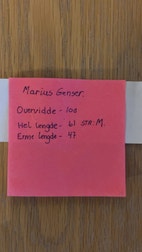 Marius Genser.
Overvidde - 100
Hel lengde - 61 STR. M.
Erme lengde - 47.